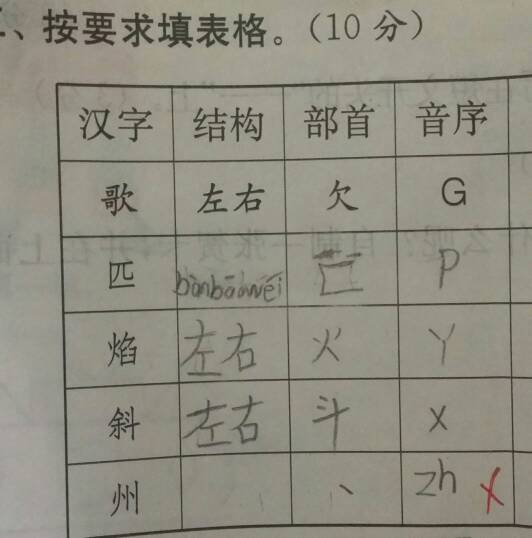 、按要求填表格。（10 分）
汉字 结构 部首 音序
歌 左右 欠 G
匹 bànbāowéi 匚 P
焰 左右 火 Y
斜 左右 斗 X
州 丶 zh